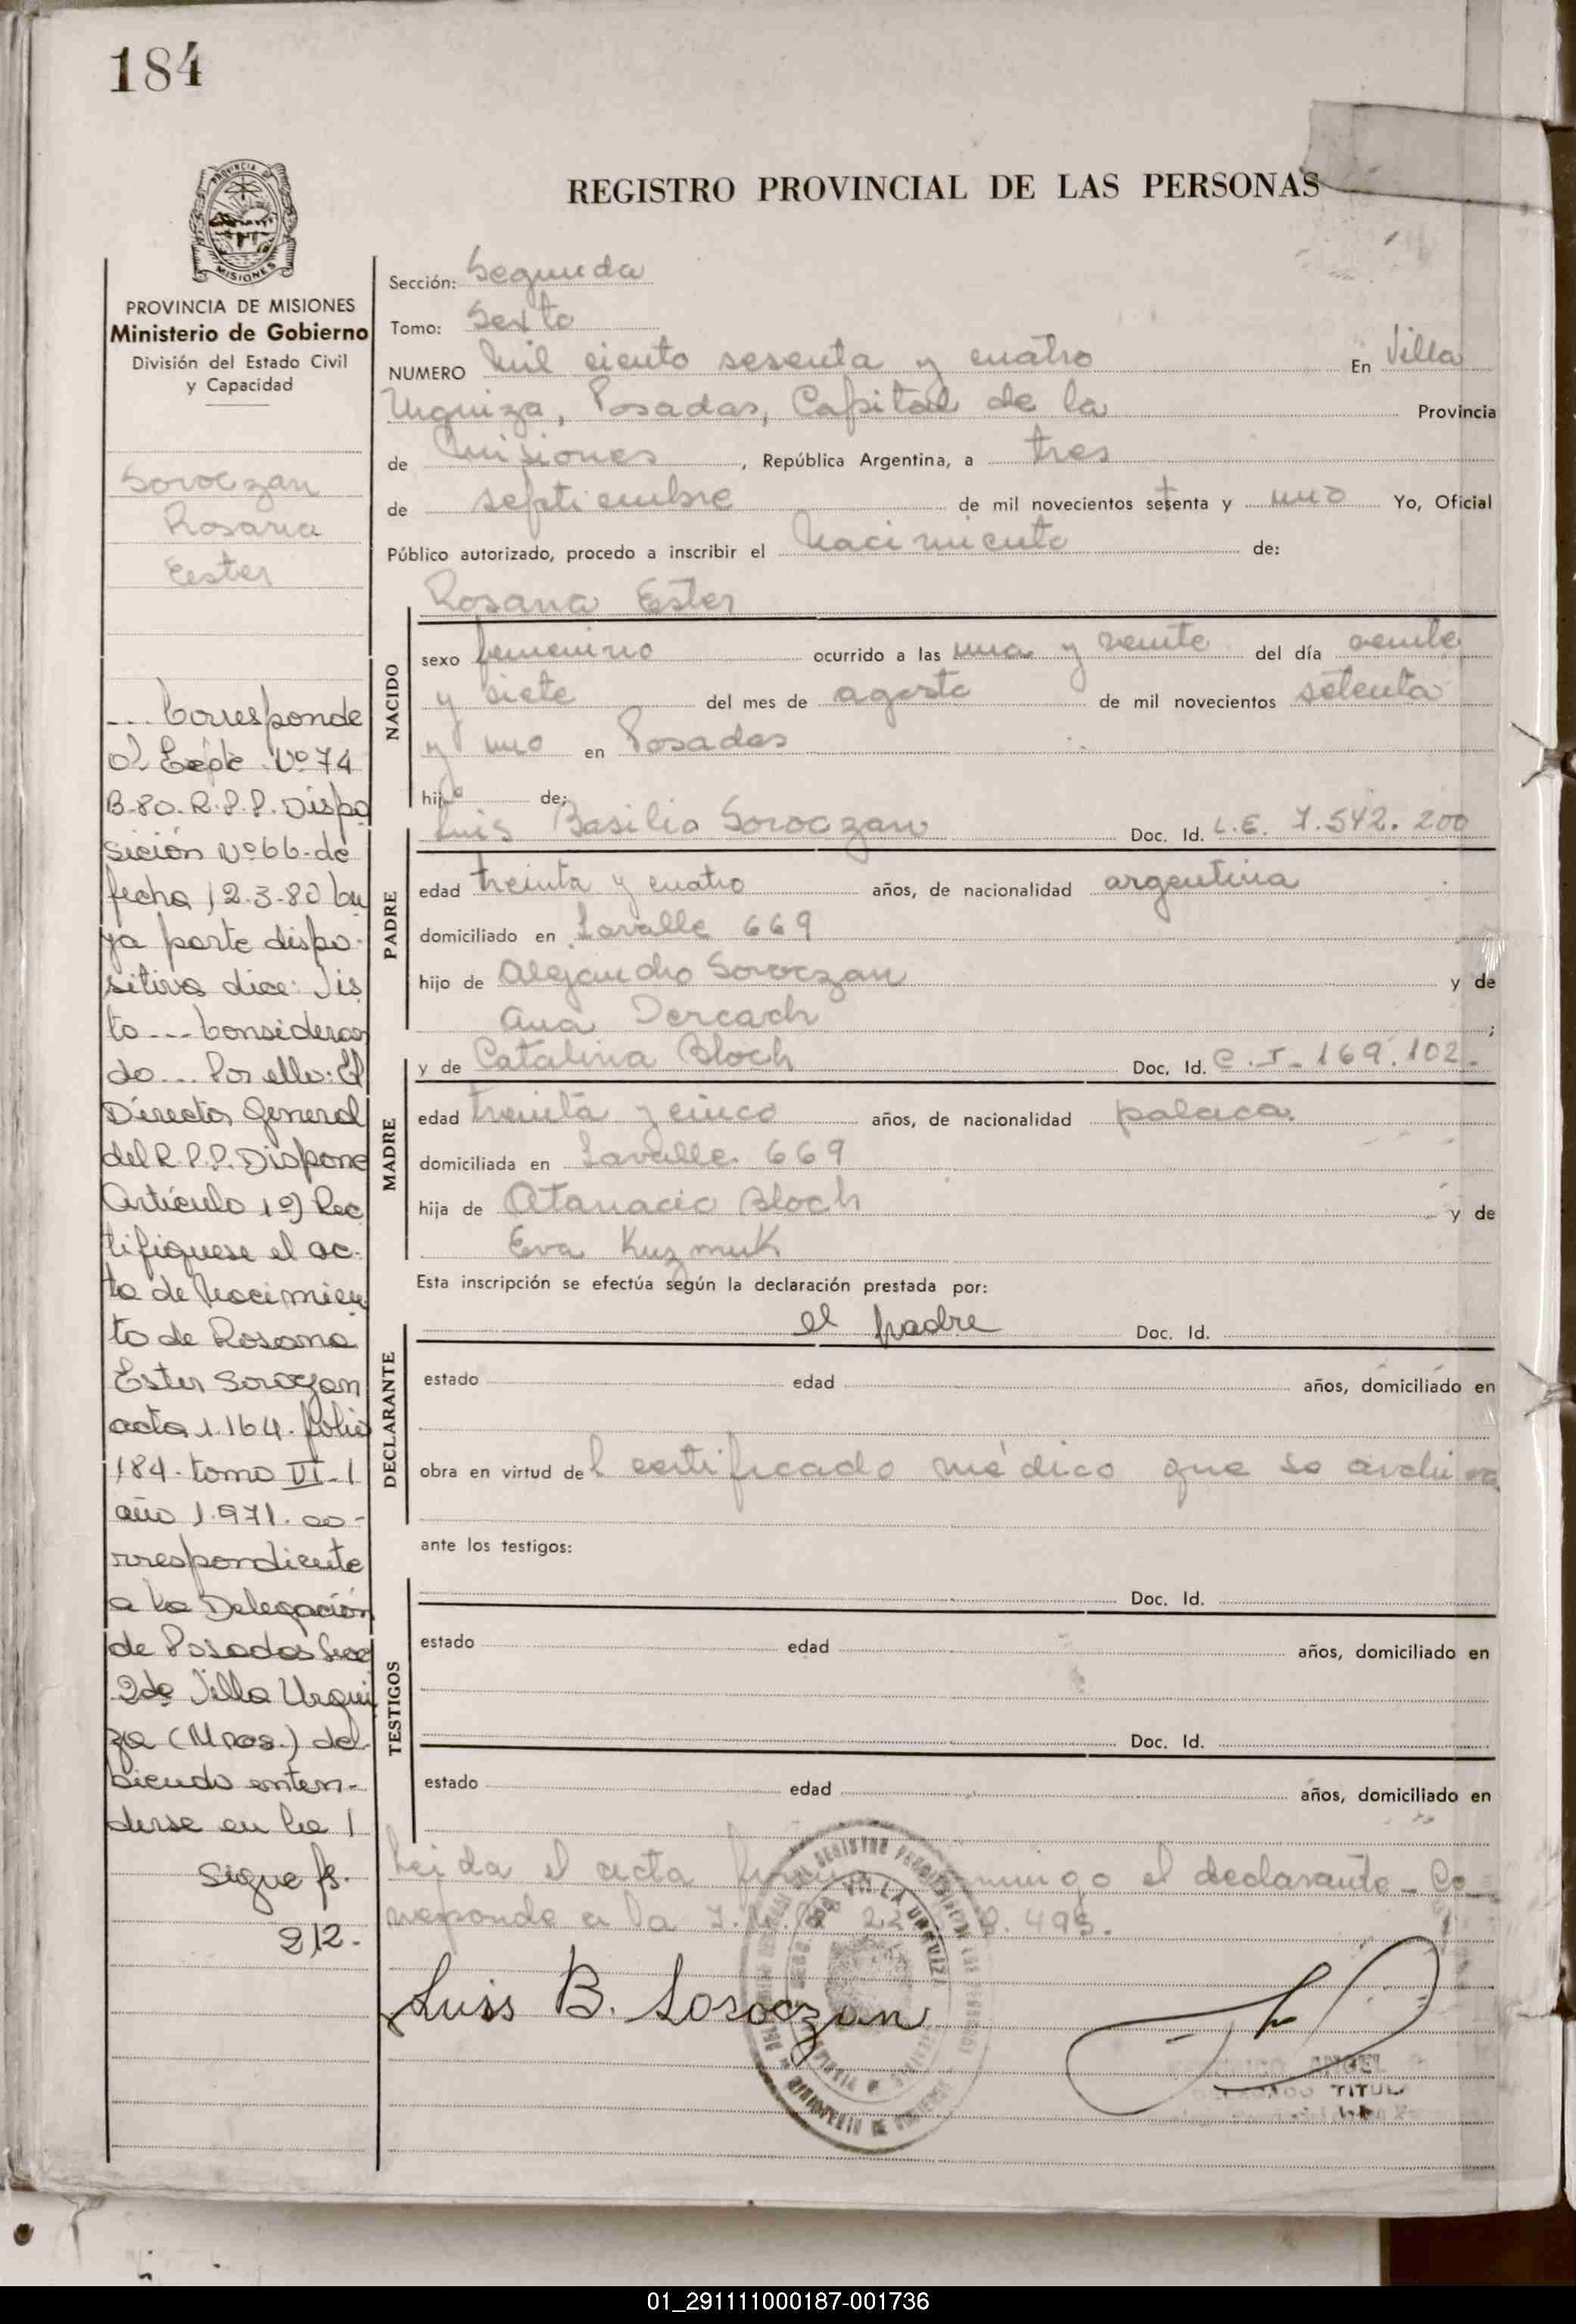 184
PROVINCIA DE MISIONES
Ministerio de Gobierno
División del Estado Civil
y Capacidad
Soroczan
Rosana
Ester
... Corresponde
al Expte Nº 74
B-80. R.P.P. Dispo
sición Nº 66-de
fecha 12-3-80 cu
ya parte dispo-
sitiva dice: Vis
to --- Consideran
do... Por ello: El
Director General
del R.P.P. Dispone
Artículo 1º) Rec
tifiquese el ac-
ta de Nacimien
to de Rosana
Ester Soroczan
acta 1.164. folio
184. tomo VI-1
año 1.971. co-
rrespondiente
a la Delegación
de Posadas Secc
2da Villa Urqui
za (Mnes.) de-
biendo enten-
derse en la /
Sigue fs.
212.
REGISTRO PROVINCIAL DE LAS PERSONAS
Sección: Segunda
Tomo: Sexto
NUMERO Mil ciento sesenta y cuatro En Villa
Urquiza, Posadas, Capital de la Provincia
de Misiones, República Argentina, a tres
de septiembre de mil novecientos setenta y uno Yo, Oficial
Público autorizado, procedo a inscribir el Nacimiento de:
Rosana Ester
NACIDO
sexo femenino ocurrido a las una y veinte del día veinte
y siete del mes de agosto de mil novecientos setenta
y uno en Posadas
hija de:
Luis Basilio Soroczan Doc. Id. L.E. 7.542.200
PADRE
edad treinta y cuatro años, de nacionalidad argentina
domiciliado en Lavalle 669
hijo de Alejandro Soroczan y de
Ana Dercach ;
y de Catalina Bloch Doc. Id. C.I. 169.102.
MADRE
edad treinta y cinco años, de nacionalidad polaca.
domiciliada en Lavalle 669
hija de Atanacio Bloch y de
Eva Kuzmuk
Esta inscripción se efectúa según la declaración prestada por:
el padre Doc. Id.
DECLARANTE
estado edad años, domiciliado en
obra en virtud del certificado médico que se archiva
ante los testigos:
Doc. Id.
TESTIGOS
estado edad años, domiciliado en
Doc. Id.
estado edad años, domiciliado en
Leida el acta firma conmigo el declarante - Co-
rresponde a la 22 495.
Luis B. Soroczan
ANGEL
TITUL
01_291111000187-001736